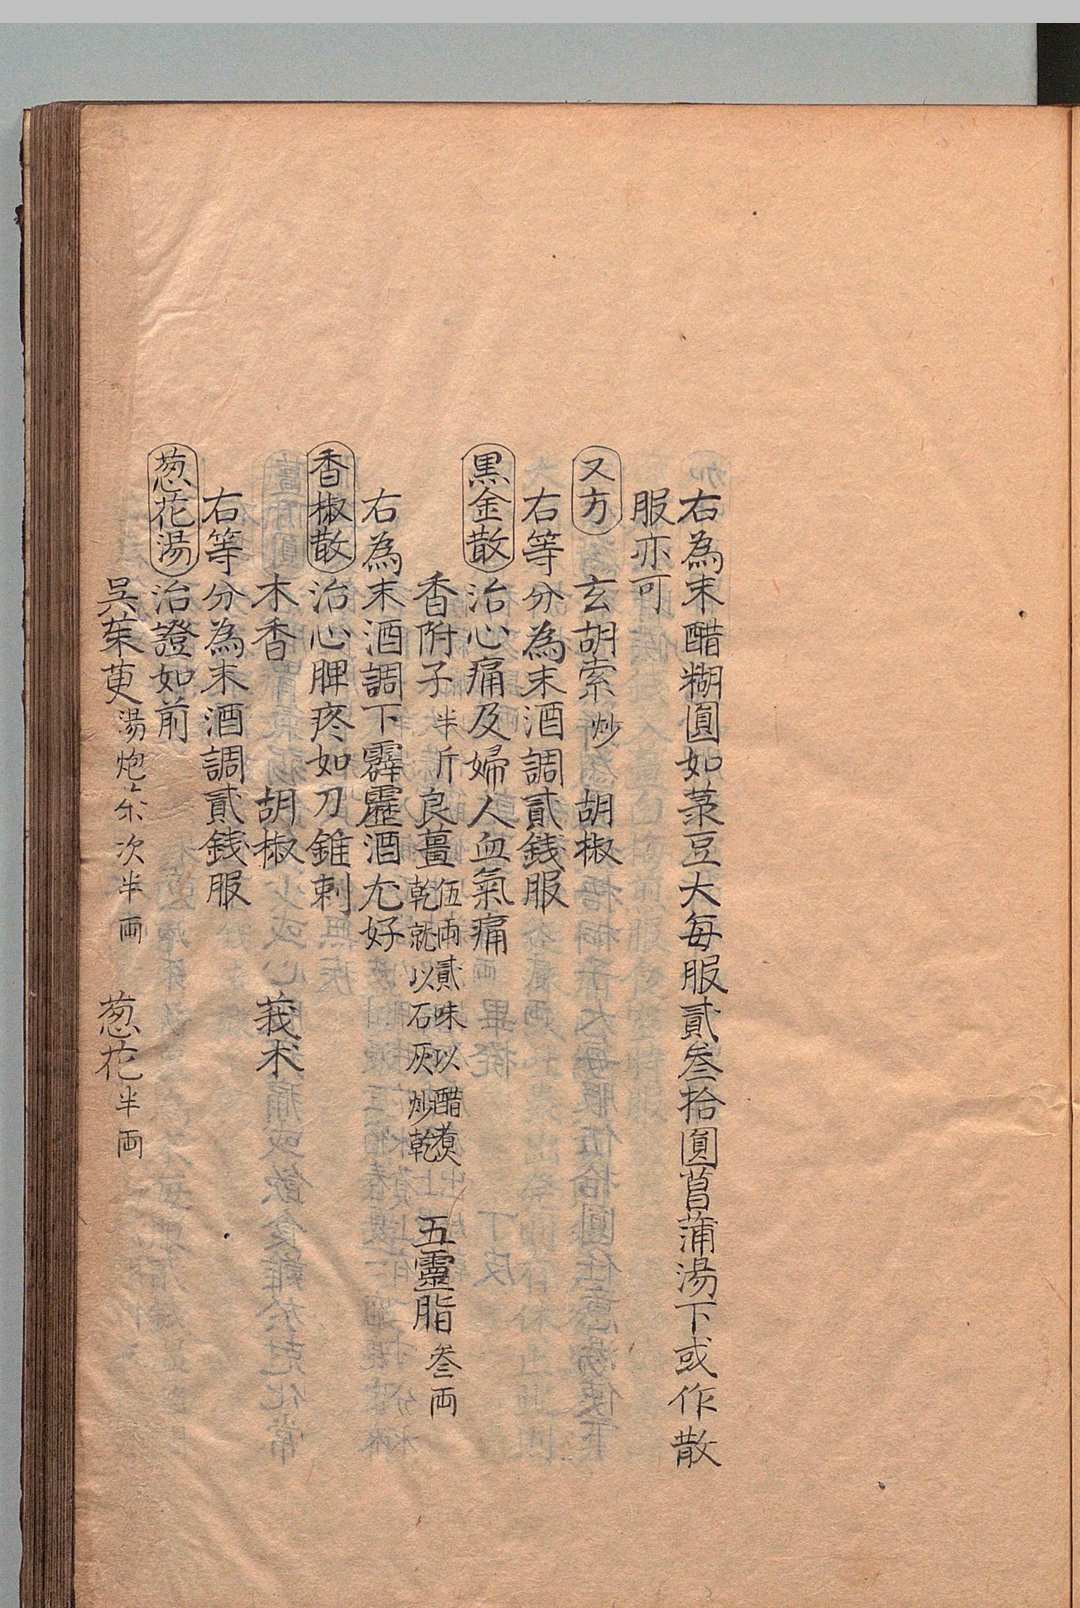 右為末醋糊圓如菉豆大每服貳叁拾圓菖蒲湯下或作散
服亦可
又方 玄胡索炒 胡椒
右等分為末酒調貳銭服
黒金散 治心痛及婦人血氣痛
香附子半斤 良薑伍両貳味以醋煑乾就以石灰炒乾 五靈脂叁両
右為末酒調下霹靂酒尤好
香椒散 治心脾疼如刀錐刺
木香 胡椒 莪术
右等分為末酒調貳銭服
葱花湯 治證如前
呉茱萸湯炮次半両 葱花半両